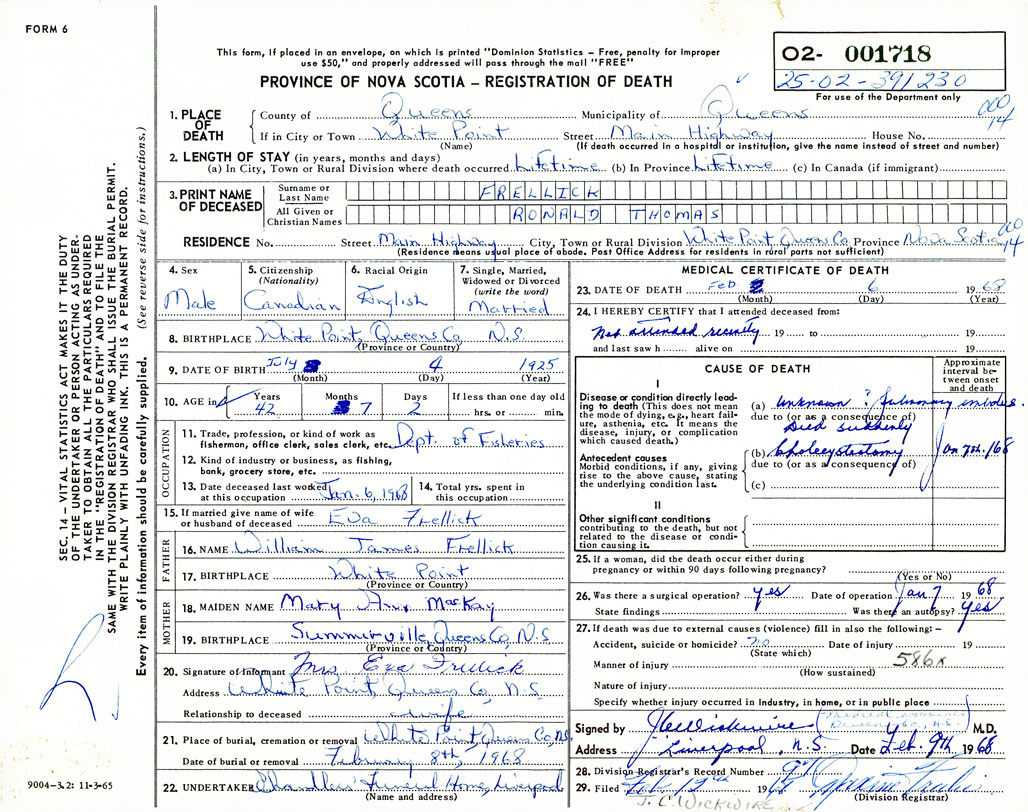 FORM 6
This form, if placed in an envelope, on which is printed "Dominion Statistics – Free, penalty for improper
use $50," and properly addressed will pass through the mail "FREE"
PROVINCE OF NOVA SCOTIA – REGISTRATION OF DEATH
O2- 001718
25-02-391230
For use of the Department only
1. PLACE OF DEATH County of Queens Municipality of Queens
If in City or Town White Point Street Main Highway House No.
(Name) (If death occurred in a hospital or institution, give the name instead of street and number)
000 14
2. LENGTH OF STAY (in years, months and days)
(a) In City, Town or Rural Division where death occurred Lifetime (b) In Province Lifetime (c) In Canada (if immigrant)
3. PRINT NAME OF DECEASED
Surname or Last Name FRELLICK
All Given or Christian Names RONALD THOMAS
RESIDENCE No. Street Main Highway City, Town or Rural Division White Point Queens Co Province Nova Scotia
000 14
(Residence means usual place of abode. Post Office Address for residents in rural parts not sufficient)
4. Sex
Male
5. Citizenship
(Nationality)
Canadian
6. Racial Origin
English
7. Single, Married,
Widowed or Divorced
(write the word)
Married
8. BIRTHPLACE White Point, Queens Co, N.S.
(Province or Country)
9. DATE OF BIRTH July 4 1925
(Month) (Day) (Year)
10. AGE in Years 42 Months 7 Days 2 If less than one day old
hrs. or min.
OCCUPATION
11. Trade, profession, or kind of work as
fisherman, office clerk, sales clerk, etc. Dept. of Fisheries
12. Kind of industry or business, as fishing,
bank, grocery store, etc.
13. Date deceased last worked
at this occupation Jan. 6, 1968
14. Total yrs. spent in
this occupation
15. If married give name of wife
or husband of deceased Eva Frellick
FATHER
16. NAME William James Frellick
17. BIRTHPLACE White Point
(Province or Country)
MOTHER
18. MAIDEN NAME Mary Ann MacKay
19. BIRTHPLACE Summerville, Queens Co, N.S
(Province or Country)
20. Signature of Informant Mrs Eva Frellick
Address White Point, Queens Co, N.S.
Relationship to deceased wife
21. Place of burial, cremation or removal White Point Queens Co, N.S.
Date of burial or removal February 8th, 1968
22. UNDERTAKER Chandlers Funeral Home, Liverpool
(Name and address)
MEDICAL CERTIFICATE OF DEATH
23. DATE OF DEATH Feb 6 1968
(Month) (Day) (Year)
24. I HEREBY CERTIFY that I attended deceased from:
Not attended recently 19 to 19
and last saw h alive on 19
CAUSE OF DEATH
Approximate
interval be-
tween onset
and death
I
Disease or condition directly lead-
ing to death (This does not mean
the mode of dying, e.g., heart fail-
ure, asthenia, etc. It means the
disease, injury, or complication
which caused death.)
(a) Unknown ? Pulmonary embolus.
due to (or as a consequence of)
Died suddenly
Antecedent causes
Morbid conditions, if any, giving
rise to the above cause, stating
the underlying condition last.
(b) Cholecystectomy
due to (or as a consequence of)
(c)
II
Other significant conditions
contributing to the death, but not
related to the disease or condi-
tion causing it.
25. If a woman, did the death occur either during
pregnancy or within 90 days following pregnancy?
(Yes or No)
26. Was there a surgical operation? yes Date of operation Jan 7 1968
State findings Was there an autopsy? yes
27. If death was due to external causes (violence) fill in also the following:–
Accident, suicide or homicide? no Date of injury 19
(State which)
586x
Manner of injury
(How sustained)
Nature of injury
Specify whether injury occurred in Industry, in home, or in public place
Signed by J C Wickwire M.D.
Address Liverpool, N.S. Date Feb. 9th 1968
28. Division Registrar's Record Number
29. Filed Feb 19
(Division Registrar)
J. C. WICKWIRE
SEC. 14 – VITAL STATISTICS ACT MAKES IT THE DUTY
OF THE UNDERTAKER OR PERSON ACTING AS UNDER-
TAKER TO OBTAIN ALL THE PARTICULARS REQUIRED
IN THE "REGISTRATION OF DEATH" AND TO FILE THE
SAME WITH THE DIVISION REGISTRAR WHO SHALL ISSUE THE BURIAL PERMIT.
WRITE PLAINLY WITH UNFADING INK. THIS IS A PERMANENT RECORD.
Every item of information should be carefully supplied. (See reverse side for instructions.)
9004-3.2: 11-3-65